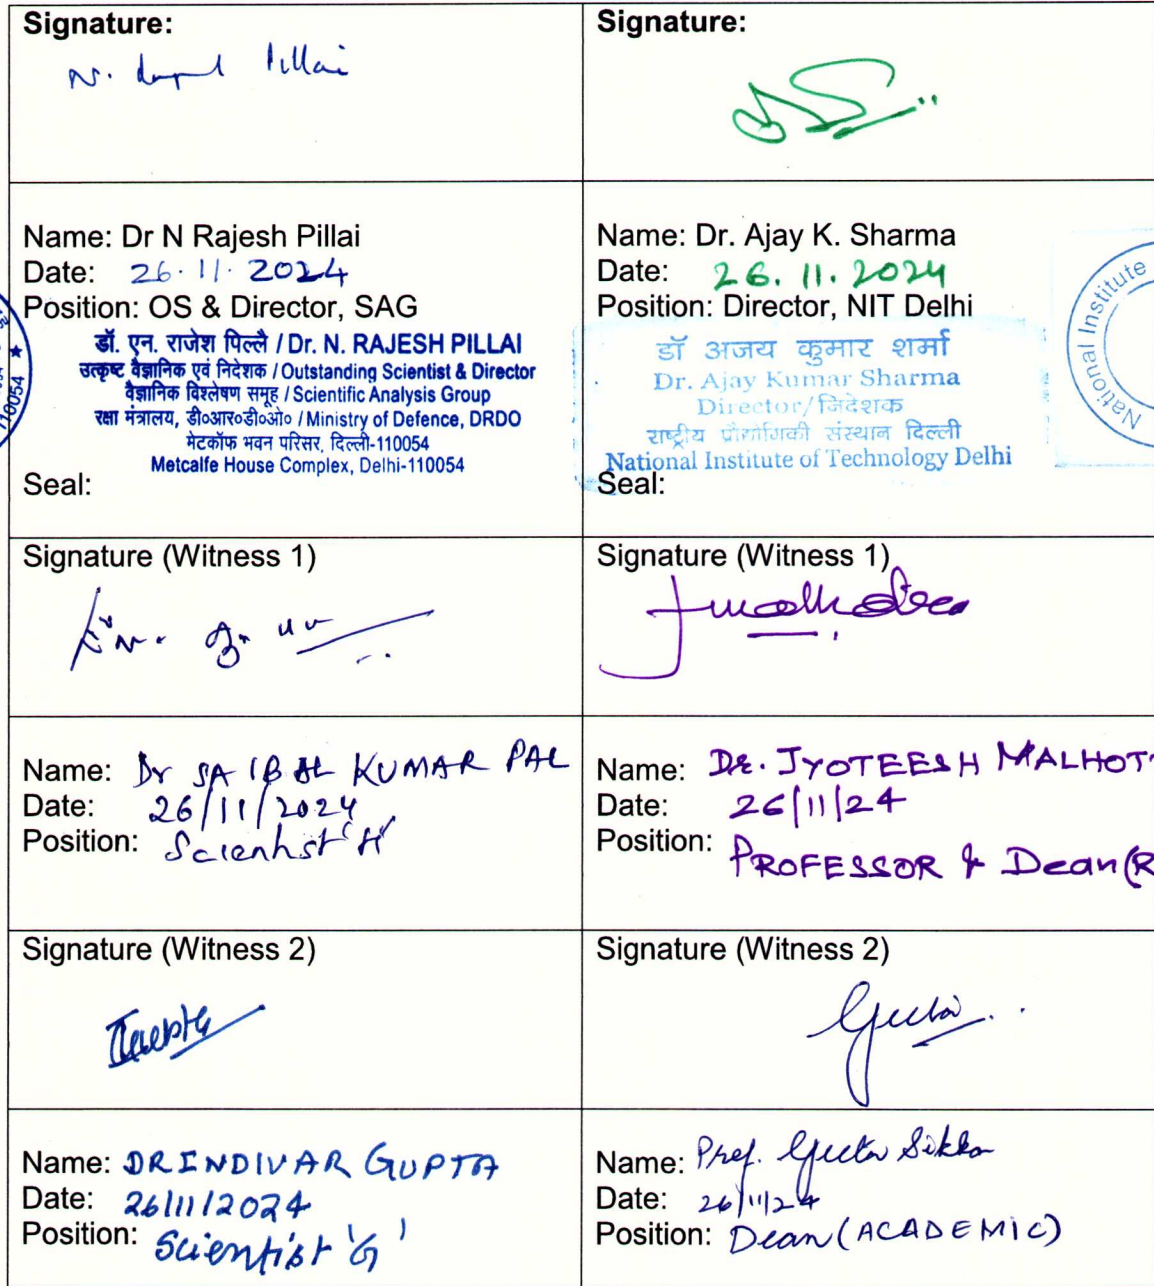 Signature:
N. Rajesh Pillai
Name: Dr N Rajesh Pillai
Date: 26.11.2024
Position: OS & Director, SAG
डॉ. एन. राजेश पिल्लै / Dr. N. RAJESH PILLAI
उत्कृष्ट वैज्ञानिक एवं निदेशक / Outstanding Scientist & Director
वैज्ञानिक विश्लेषण समूह / Scientific Analysis Group
रक्षा मंत्रालय, डी०आर०डी०ओ० / Ministry of Defence, DRDO
मेटकॉफ भवन परिसर, दिल्ली-110054
Metcalfe House Complex, Delhi-110054
Seal:
110054
Signature:
Name: Dr. Ajay K. Sharma
Date: 26.11.2024
Position: Director, NIT Delhi
डॉ अजय कुमार शर्मा
Dr. Ajay Kumar Sharma
Director/निदेशक
राष्ट्रीय प्रौद्योगिकी संस्थान दिल्ली
National Institute of Technology Delhi
Seal:
National Institute
Signature (Witness 1)
Name: Dr SAIBAL KUMAR PAL
Date: 26/11/2024
Position: Scientist 'H'
Signature (Witness 1)
Name: DR. JYOTEESH MALHOT
Date: 26/11/24
Position: PROFESSOR & Dean (R
Signature (Witness 2)
IGupta
Name: DR INDIVAR GUPTA
Date: 26/11/2024
Position: Scientist 'G'
Signature (Witness 2)
Geeta
Name: Prof. Geeta Sikka
Date: 26/11/24
Position: Dean (ACADEMIC)